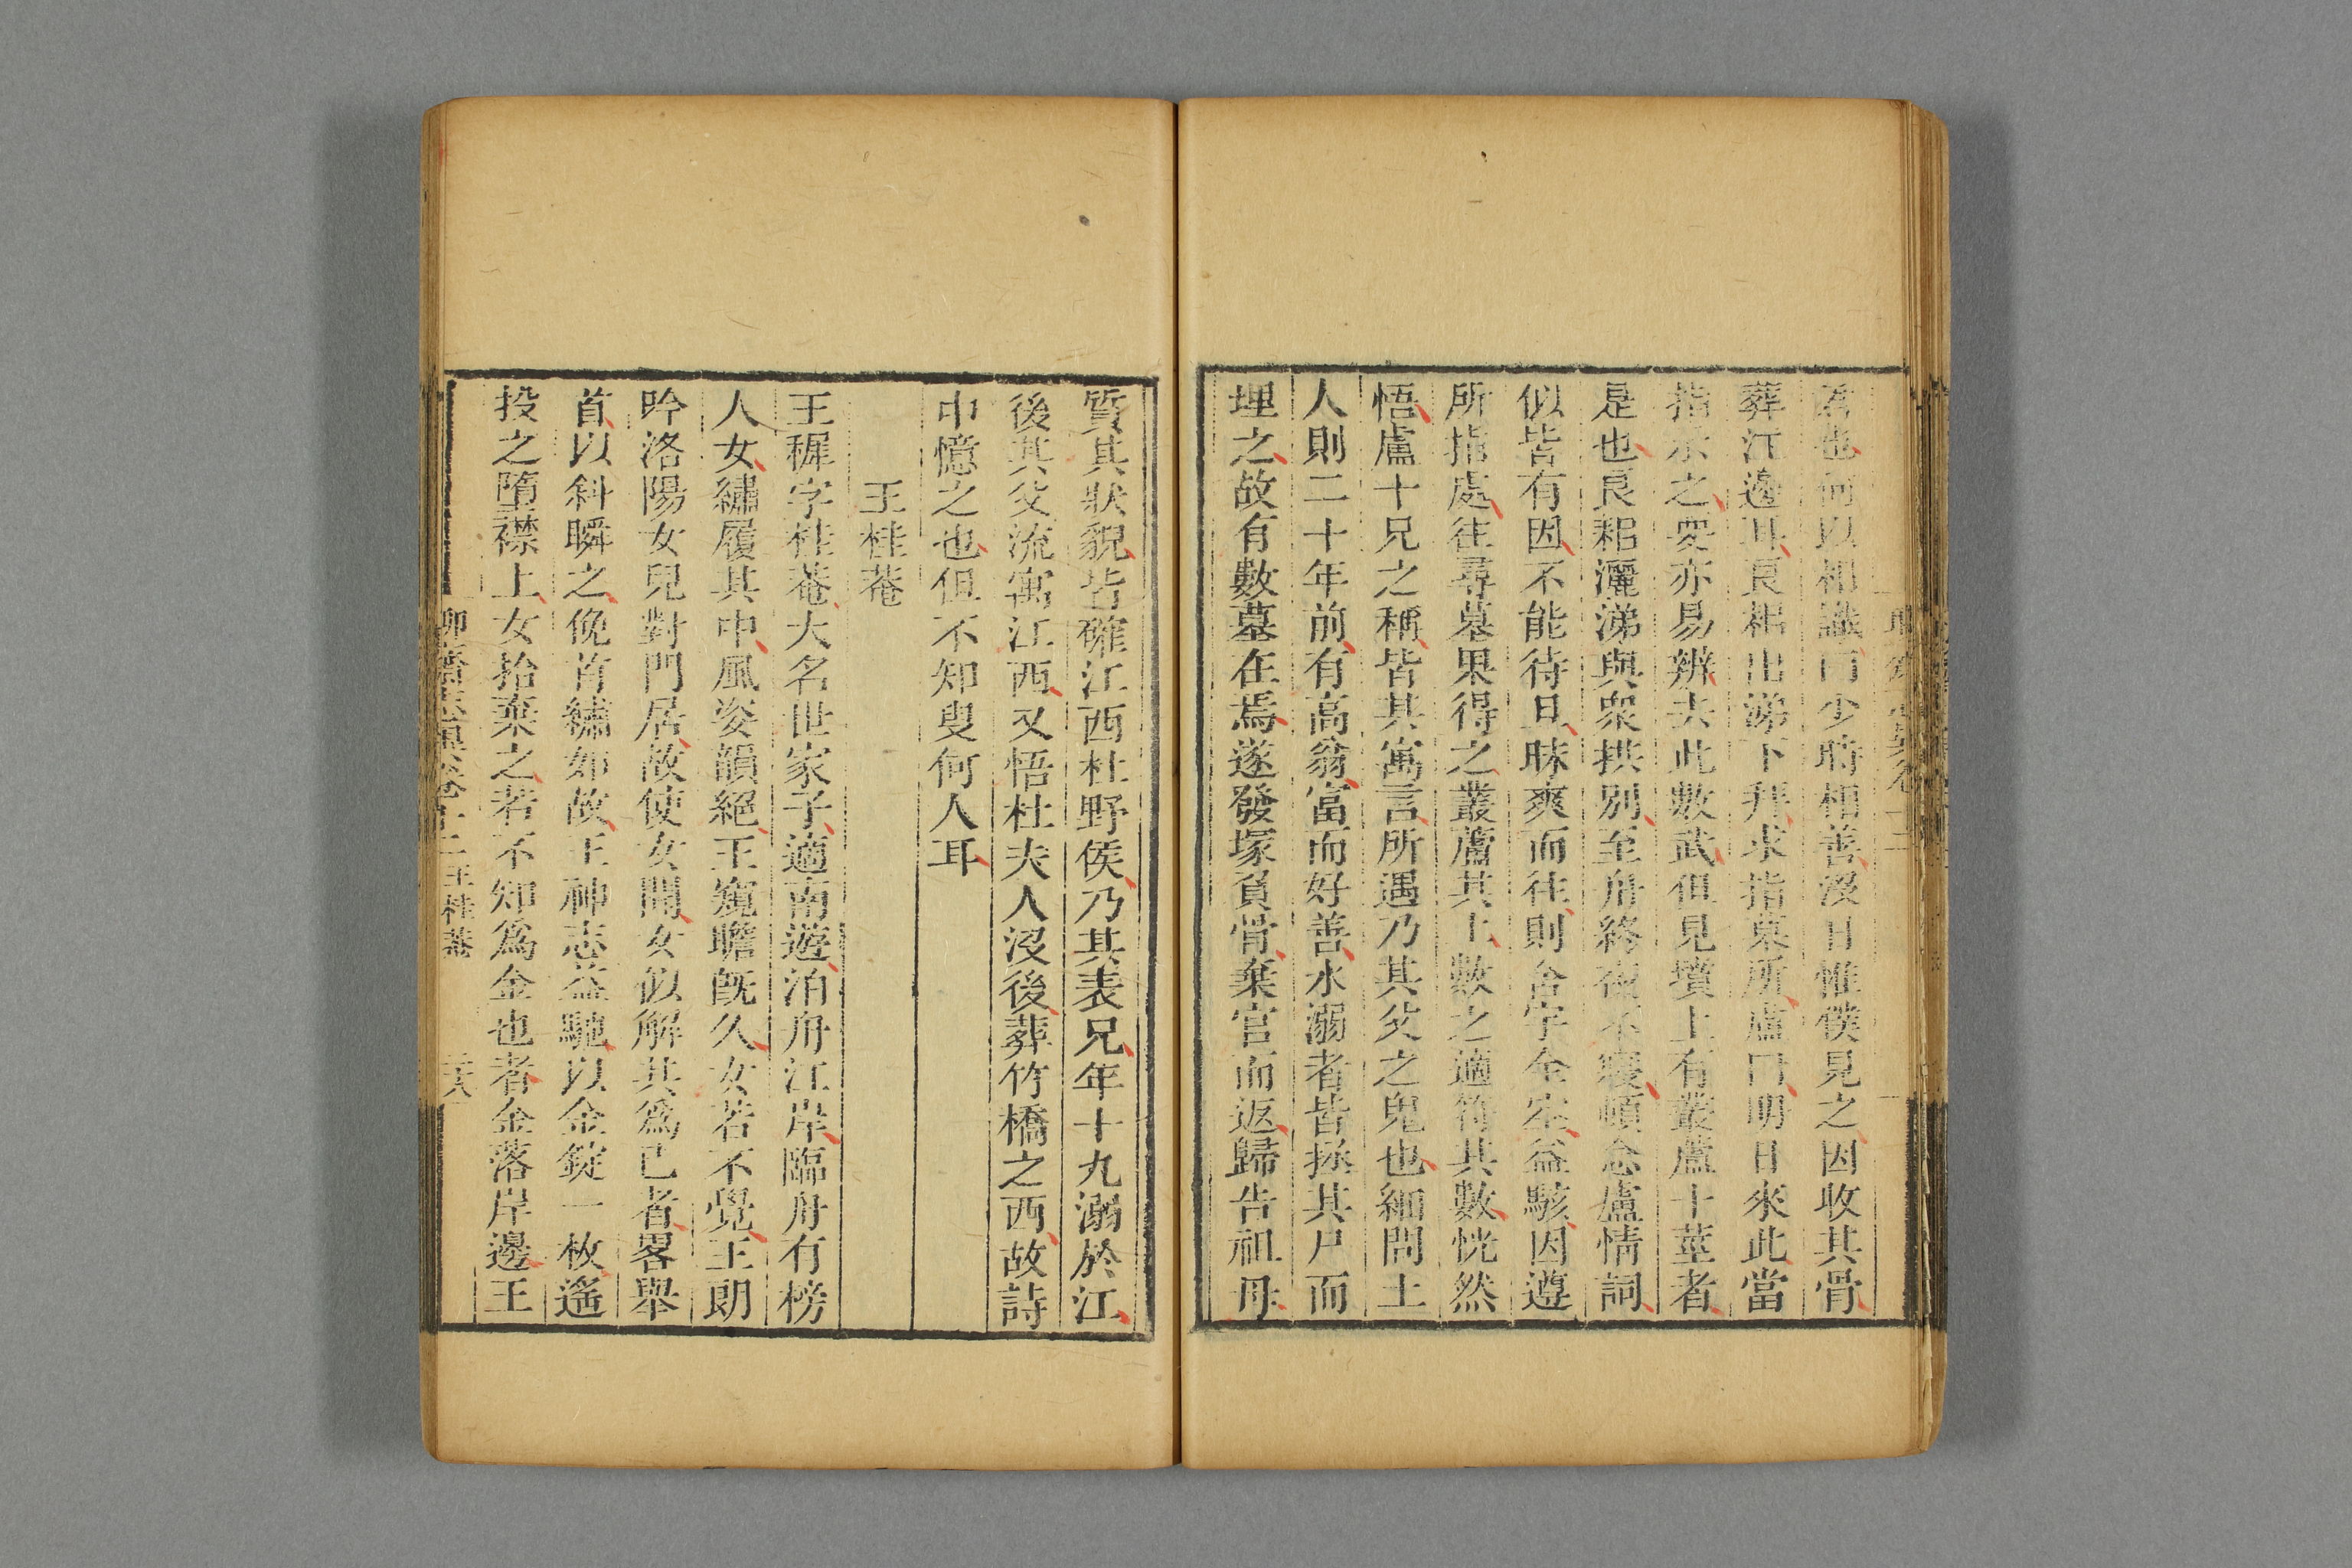 君也何以相識曰少時相善沒日惟僕見之因收其骨
葬江邊耳良耜出涕下拜求指墓所盧曰明日來此當
指示之衆亦易辨去此數武但見墳上有叢蘆十莖者
是也良耜灑涕與衆拱别至舟終夜不寢頓念盧情詞
似皆有因不能待旦昧爽而往則舍宇全空益駭因遵
所指處往尋墓果得之叢蘆其上數之適符其數恍然
悟盧十兄之稱皆其寓言所遇乃其父之鬼也細問土
人則二十年前有高翁富而好善水溺者皆拯其尸而
埋之故有數墓在焉遂發塚負骨棄官而返歸告祖母
質其狀貌皆確江西杜野侯乃其表兄年十九溺於江
後其父流寓江西又悟杜夫人沒後葬竹橋之西故詩
中憶之也但不知叟何人耳
王桂菴
王穉字桂菴大名世家子適南遊泊舟江岸臨舟有榜
人女繡履其中風姿韻絕王窺瞻旣久女若不覺王朗
吟洛陽女兒對門居故使女聞女似解其爲己者畧舉
首以斜瞬之俛首繡如故王神志益馳以金錠一枚遙
投之墮襟上女拾棄之若不知爲金也者金落岸邊王
聊齋志異卷十二王桂菴